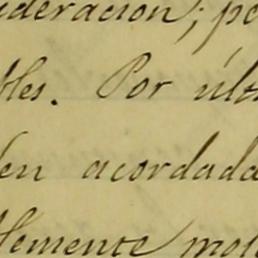 ideración; pe
bles. Por últi
den acordada
blemente mol